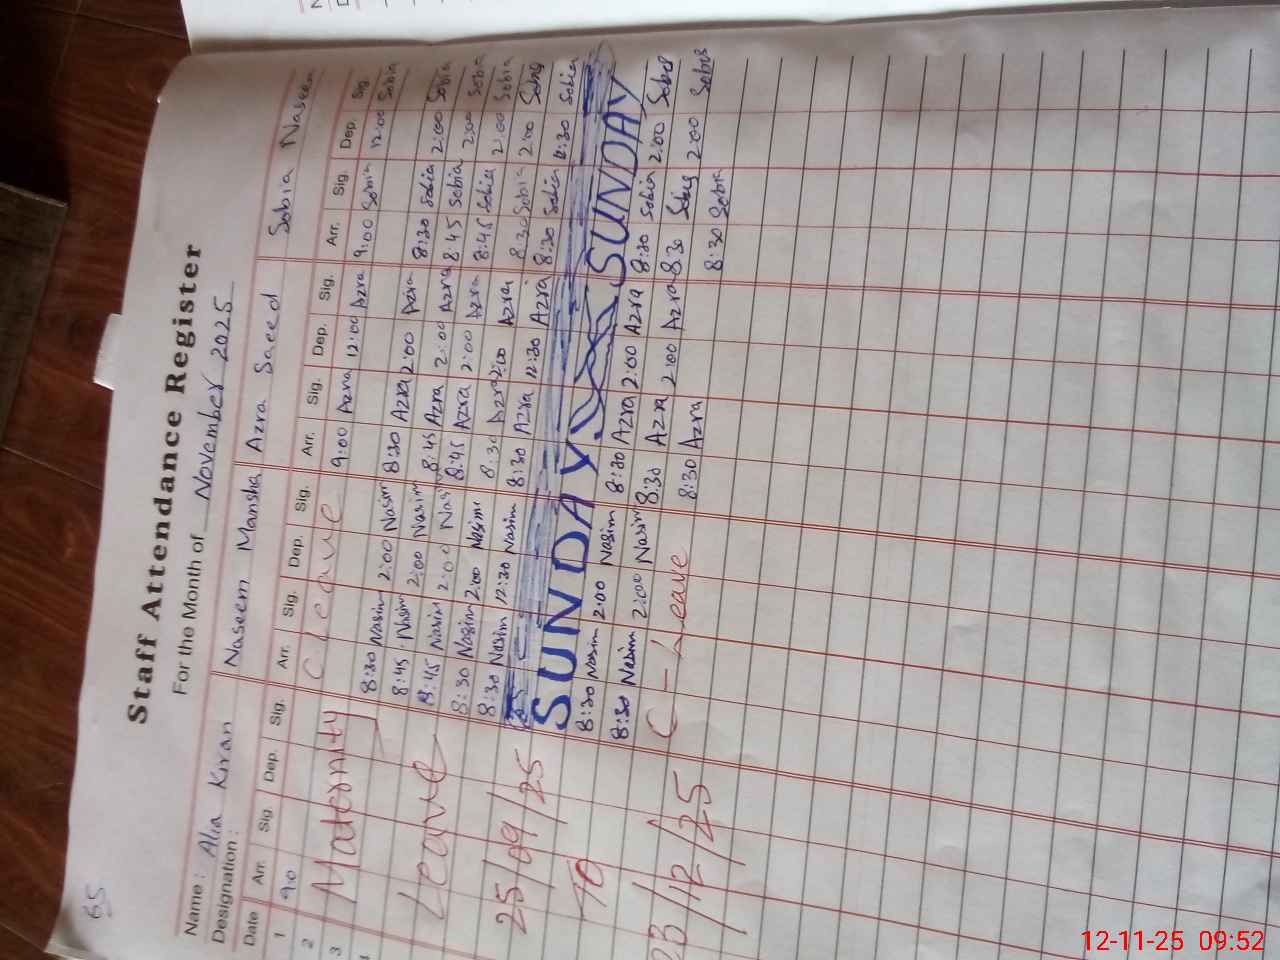 65
Staff Attendance Register
For the Month of November 2025
Name: Alia Kiran Naseem Mansha Azra Saeed Sobia Naseem
Designation:
Date Arr. Sig. Dep. Sig. Arr. Sig. Dep. Sig. Arr. Sig. Dep. Sig. Arr. Sig. Dep. Sig.
1 9:0 C leave 9:00 Azra 12:00 Azra 9:00 Sobia 12:00 Sobia
2
3 Maternity 8:30 Nasim 2:00 Nasim 8:30 Azra 2:00 Azra 8:30 Sobia 2:00 Sobia
8:45 Nasim 2:00 Nasim 8:45 Azra 2:00 Azra 8:45 Sobia 2:00 Sobia
Leave 8:45 Nasim 2:00 Nasi 8:45 Azra 2:00 Azra 8:45 Sobia 2:00 Sobia
8:30 Nasim 2:00 Nasim 8:30 Azra 2:00 Azra 8:30 Sobia 2:00 Sobia
8:30 Nasim 12:30 Nasim 8:30 Azra 12:30 Azra 8:30 Sobia Sobia
25/09/25
SUNDAY SUNDAY
TO 8:30 Nasim 2:00 Nasim 8:30 Azra 2:00 Azra 8:30 Sobia 2:00 Sobia
8:30 Nasim 2:00 Nasim 8:30 Azra 2:00 Azra 8:30 Sobia 2:00 Sobia
23/12/25 C-Leave 8:30 Azra 8:30 Sobia
12-11-25 09:52